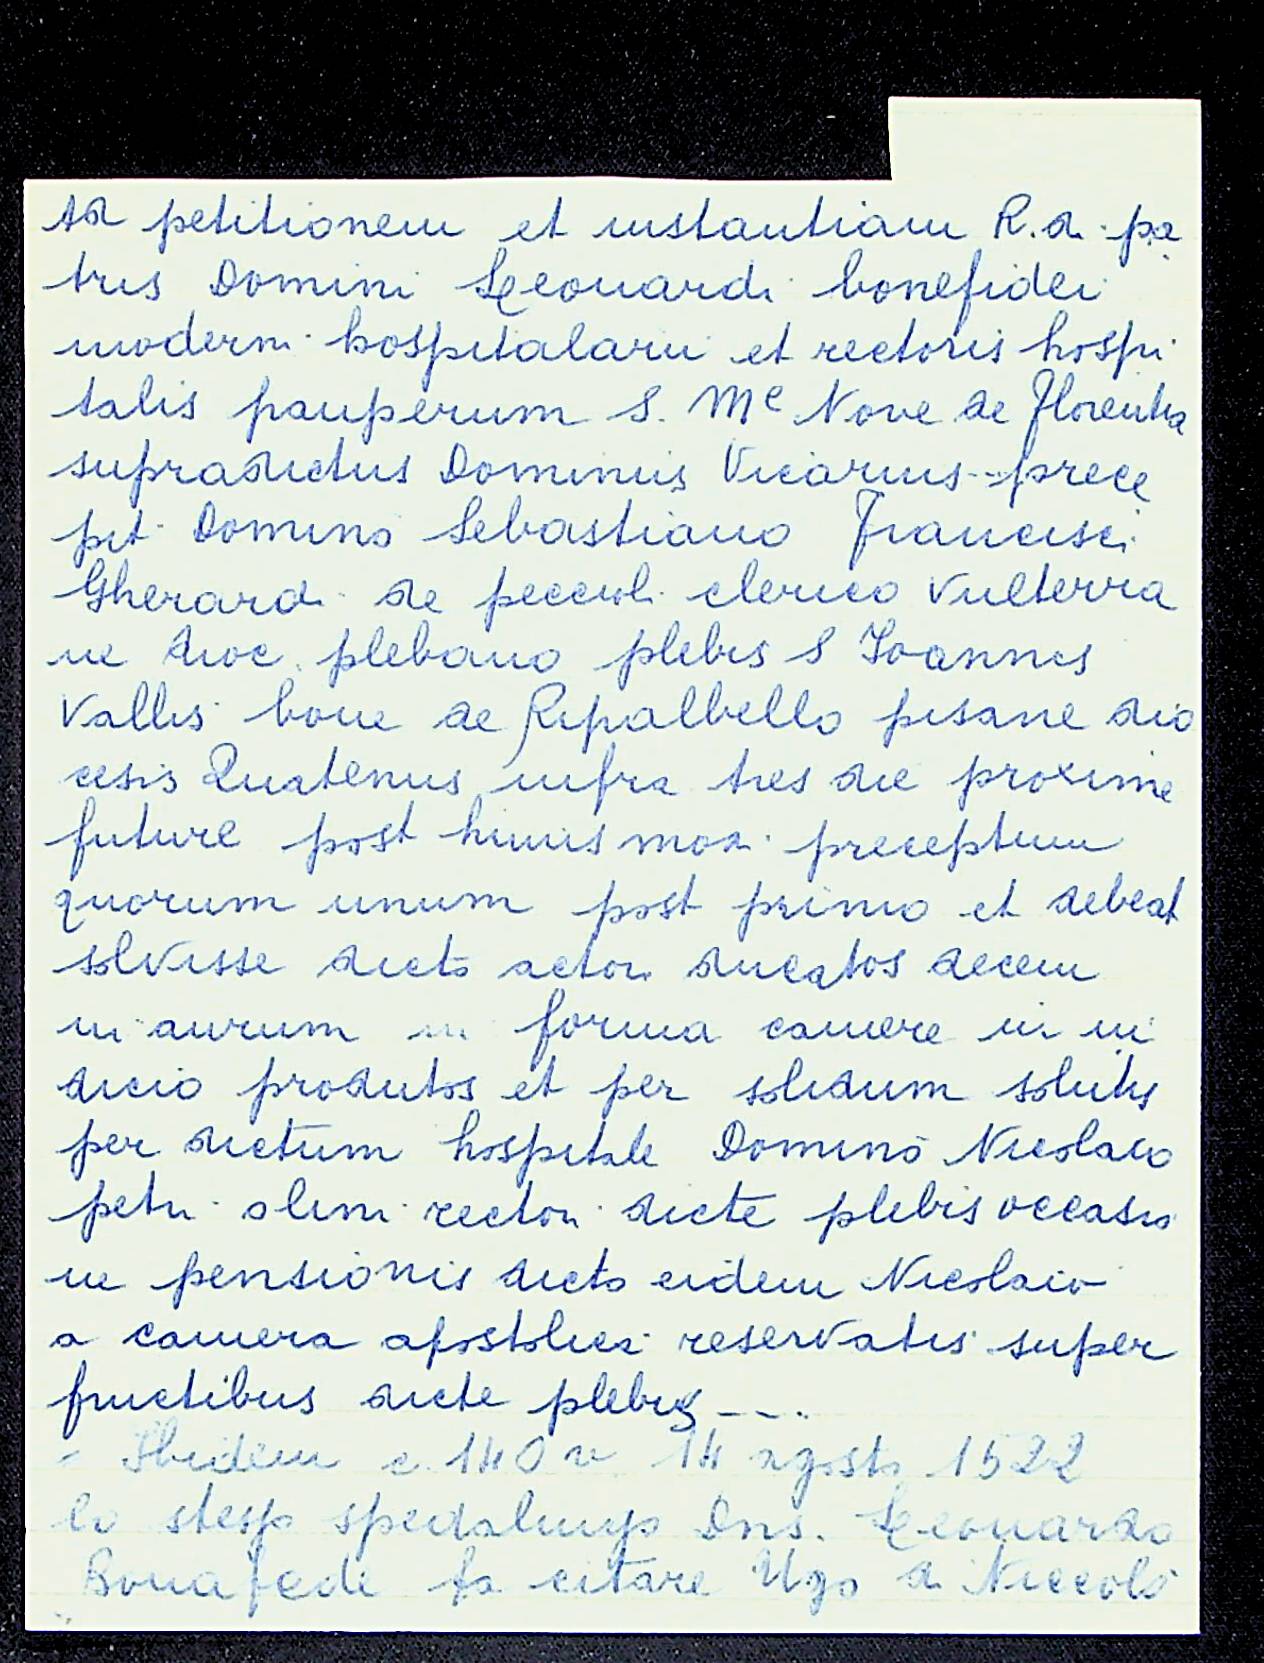 Ad petitionem et instantiam R.d. pa
tris Domini Leonardi bonefidei
moderni hospitalarii et rectoris hospi
talis pauperum S. Me Nove de Florentia
supradictus Dominus Vicarius -- prece
pit Domino Sebastiano Francisci
Gherardi de peccioli clerico Vulterra
ne dioc. plebano plebis S Joannes
Vallis bone de Ripalbello pisane dio
cesis Quatenus infra tres die proxime
future post huius mod. preceptum
quorum unum post primo et debeat
solvisse dicto actori ducatos decem
in aurum in forma camere in iu
dicio produtos et per solidum solutis
per dictum hospitale Domino Nicolaio
petri olim rectori dicte plebis occasio
ne pensionis dicto eidem Nicolaio
a camera apostolica reservatis super
fructibus dicte plebis ---.
- Ibidem c. 140 v 14 agosto 1522
lo stesso spedalingo Dns. Leonardo
Bonafede fa citare Ugo di Niccolò